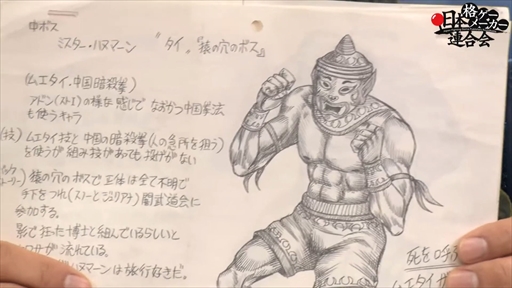 日本格ゲーメーカー連合会
中ボス
ミスター・ハヌマーン　"タイ。『猿の穴のボス』
(ムエタイ・中国暗殺拳)
アドン(ストI)の様な感じで なおかつ中国拳法
も使うキャラ
(技) ムエタイ技と中国の暗殺拳(人の急所を狙う)
を使うが組み技があっても投げがない
猿の穴のボスで正体は全て不明で
手下をつれ(ストーとジュリアナ)闇武道会に
参加する。
影で狂った博士と組んでいるらしいと
が流れている。
ハヌマーンは旅行好きだ。
死を呼ぶ
ムエタイ